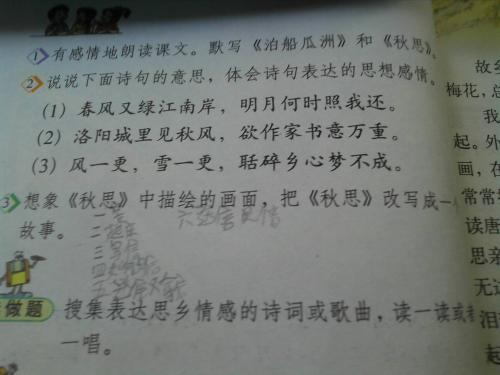 1 有感情地朗读课文。默写《泊船瓜洲》和《秋思》。
2 说说下面诗句的意思，体会诗句表达的思想感情。
(1) 春风又绿江南岸，明月何时照我还。
(2) 洛阳城里见秋风，欲作家书意万重。
(3) 风一更，雪一更，聒碎乡心梦不成。
3 想象《秋思》中描绘的画面，把《秋思》改写成一个
故事。
做题
搜集表达思乡情感的诗词或歌曲，读一读或者
一唱。
故乡
梅花，总
我
起。外
画，在
常常
读唐
思亲
无论
泪
起